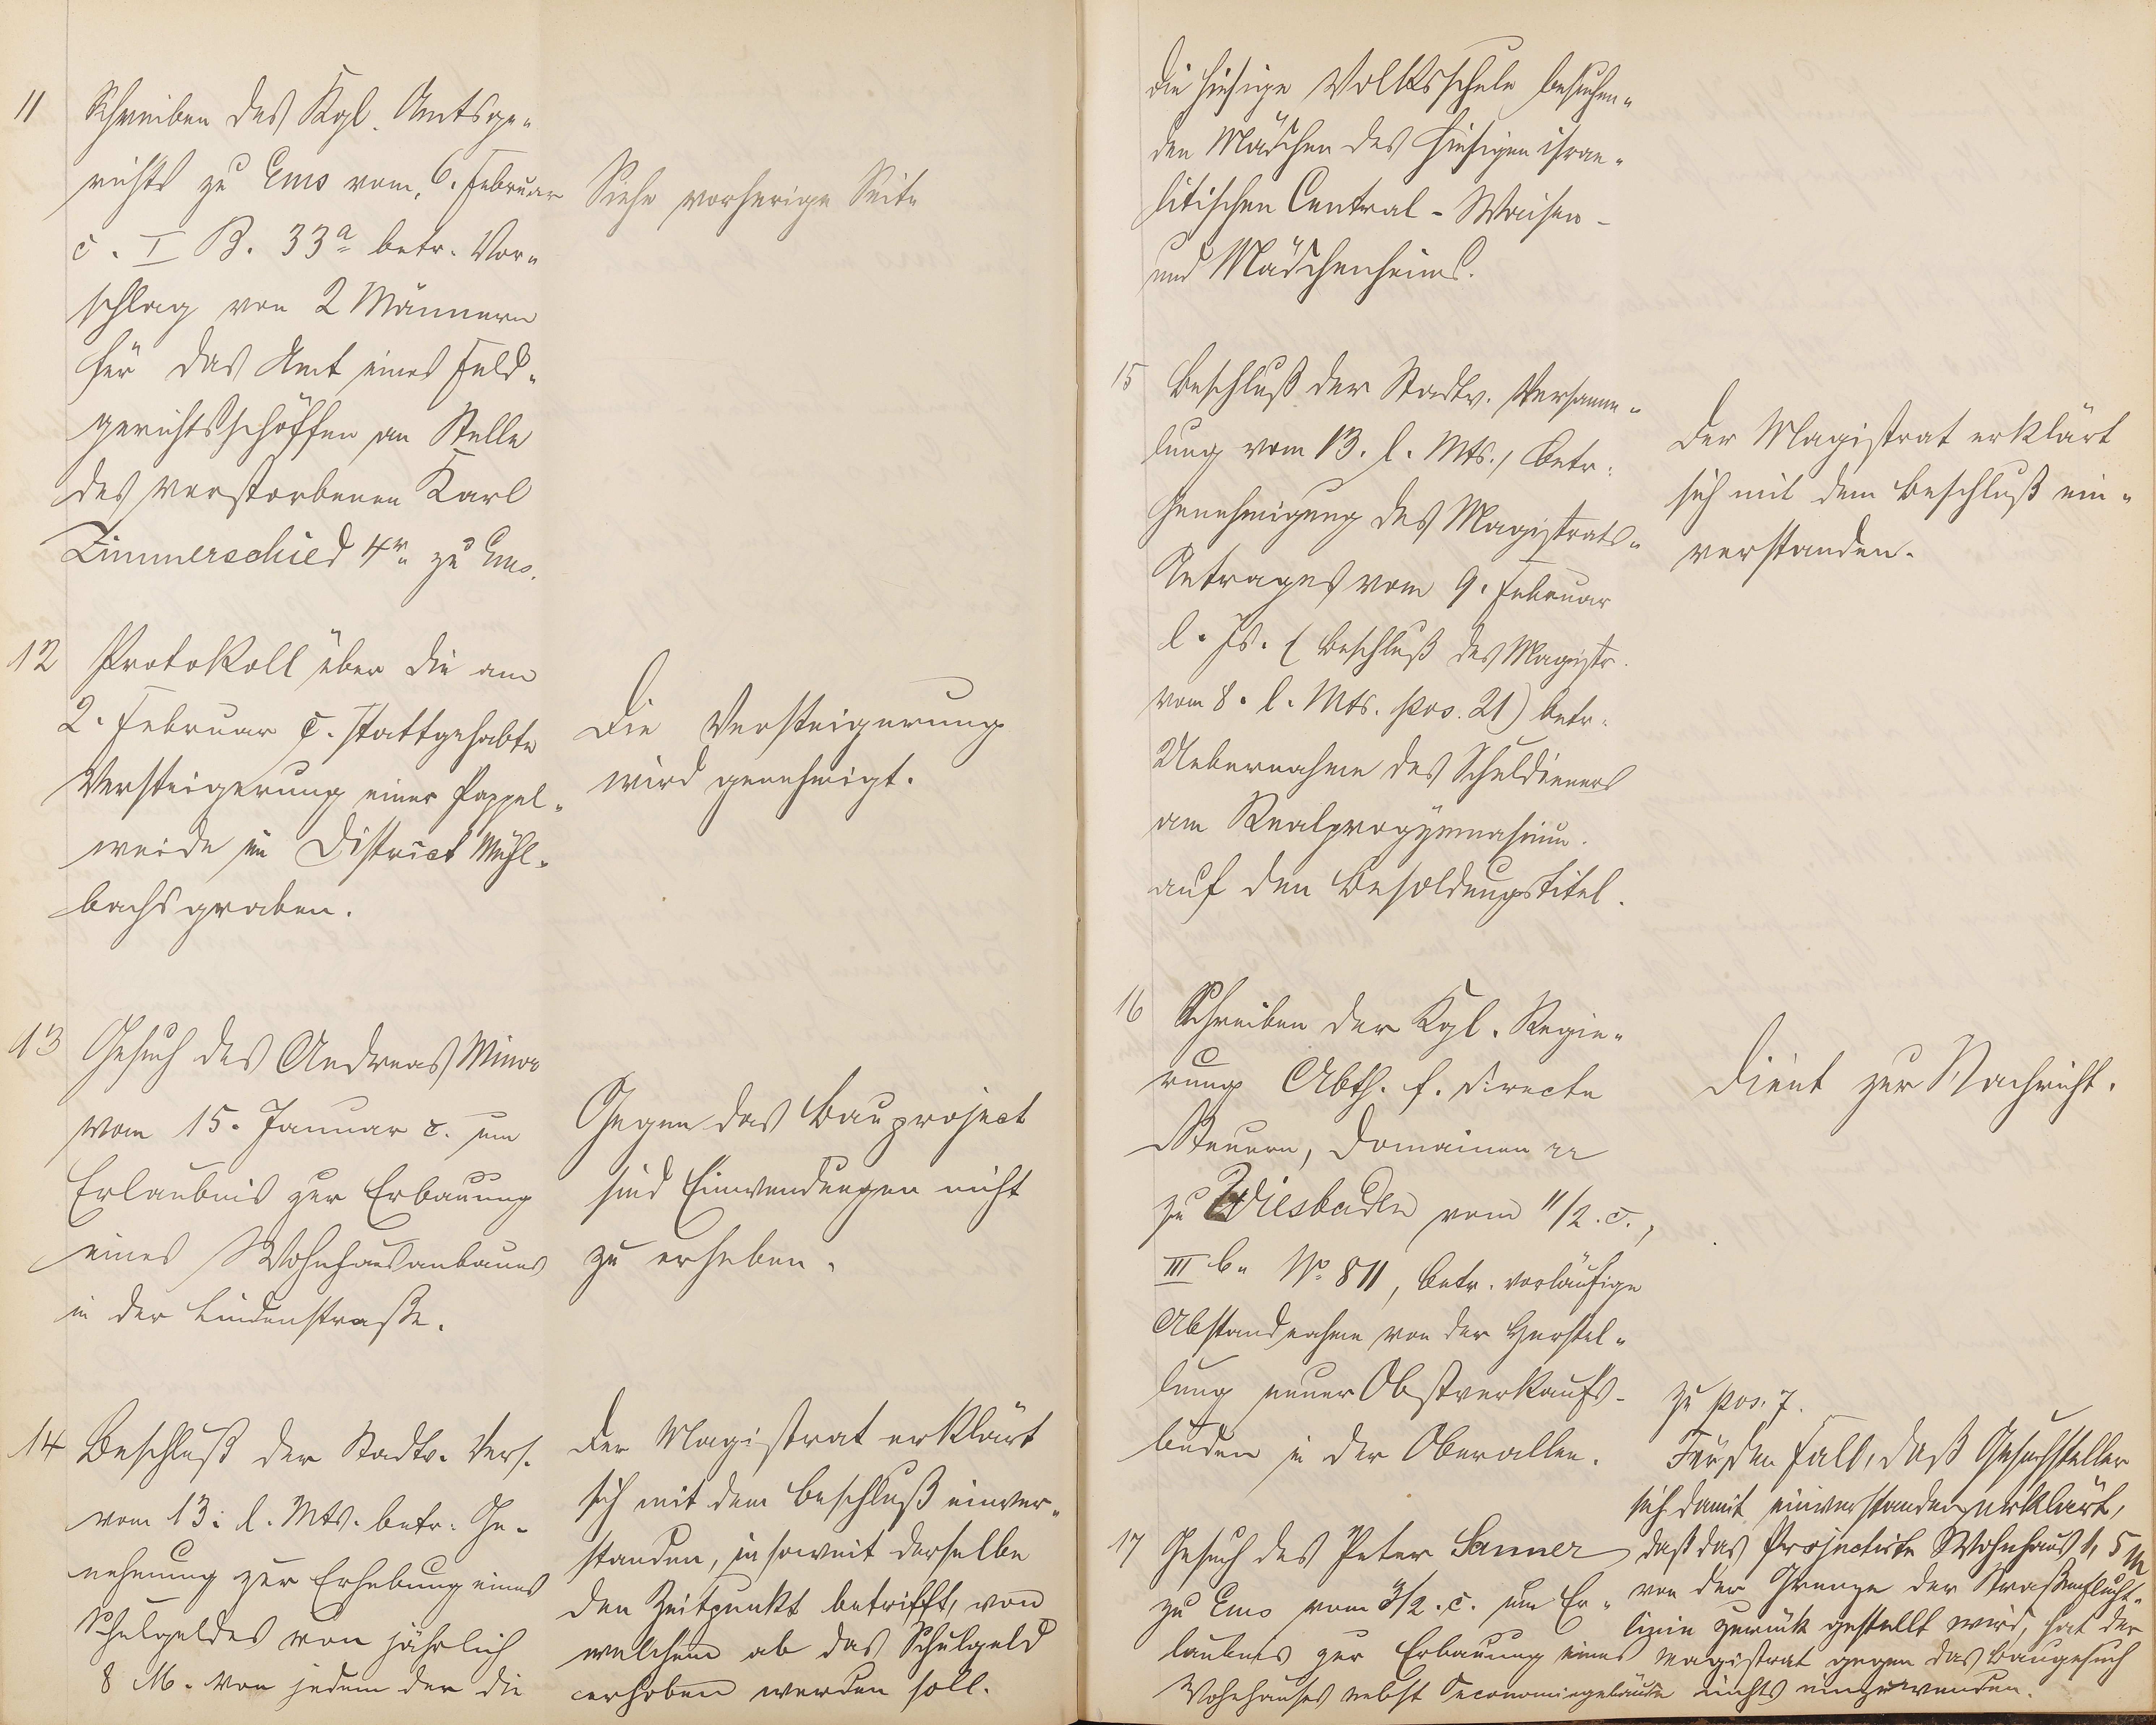 11 Schreiben des Kgl. Amtsge-
richts zu Ems vom 6. Februar
c. I B. 33a betr. Vor-
schlag von 2 Männern
für das Amt eines Feld-
gerichtsschöffen an Stelle
des verstorbenen Karl
Zimmerschied 4r zu Ems.
Siehe vorherige Seite
12 Protokoll über die am
2. Februar c. stattgehabte
Versteigerung einer Pappel-
weide im District Mühl-
bachsgraben.
Die Versteigerung
wird genehmigt.
13 Gesuch des Andreas Minor
vom 15. Januar c. um
Erlaubnis zur Erbauung
eines Wohnhausanbaues
in der Lindenstraße.
Gegen das Bauproject
sind Einwendungen nicht
zu erheben.
14 Beschluß der Stadtv. Vers.
vom 13. l. Mts. betr. Ge-
nehmung zur Erhebung eines
Schulgeldes von jährlich
8 M. von jedem der die
Der Magistrat erklärt
sich mit dem Beschluß einver-
standen, insoweit derselbe
den Zeitpunkt betrifft, von
welchem ab das Schulgeld
erhoben werden soll.
die hiesige Volksschule besuchen-
den Mädchen des hiesigen israe-
litischen Central-Waisen-
und Mädchenheims.
15 Beschluß der Stadtv. Versamm-
lung vom 13. l. Mts., betr.
Genehmigung des Magistrats-
Antrages vom 9. Februar
l. Js. (Beschluß des Magistr.
vom 8. l. Mts. pos. 21) betr.
Uebernahme des Schuldieners
am Realprogymnasium
auf den Besoldungstitel.
Der Magistrat erklärt
sich mit dem Beschluß ein-
verstanden.
16 Schreiben der Kgl. Regie-
rung Abth. f. directe
Steuern, Domainen rc
zu Wiesbaden vom 11/2. c.,
III b. No 811, betr. vorläufige
Abstandnahme von der Herstel-
lung neuer Obstverkaufs-
buden in der Oberallee.
Dient zur Nachricht.
17 Gesuch des Peter Sanner
zu Ems vom 3/2. c. um Er-
laubnis zur Erbauung eines
Wohnhauses nebst Oeconomiegebäude
zu pos. 7.
Für den Fall, daß Gesuchsteller
sich damit einverstanden erklärt,
daß das projectirte Wohnhaus 1,5 M
von der Grenze der Straßenflucht-
linie zurück gestellt wird, hat der
Magistrat gegen das Baugesuch
nichts einzuwenden.